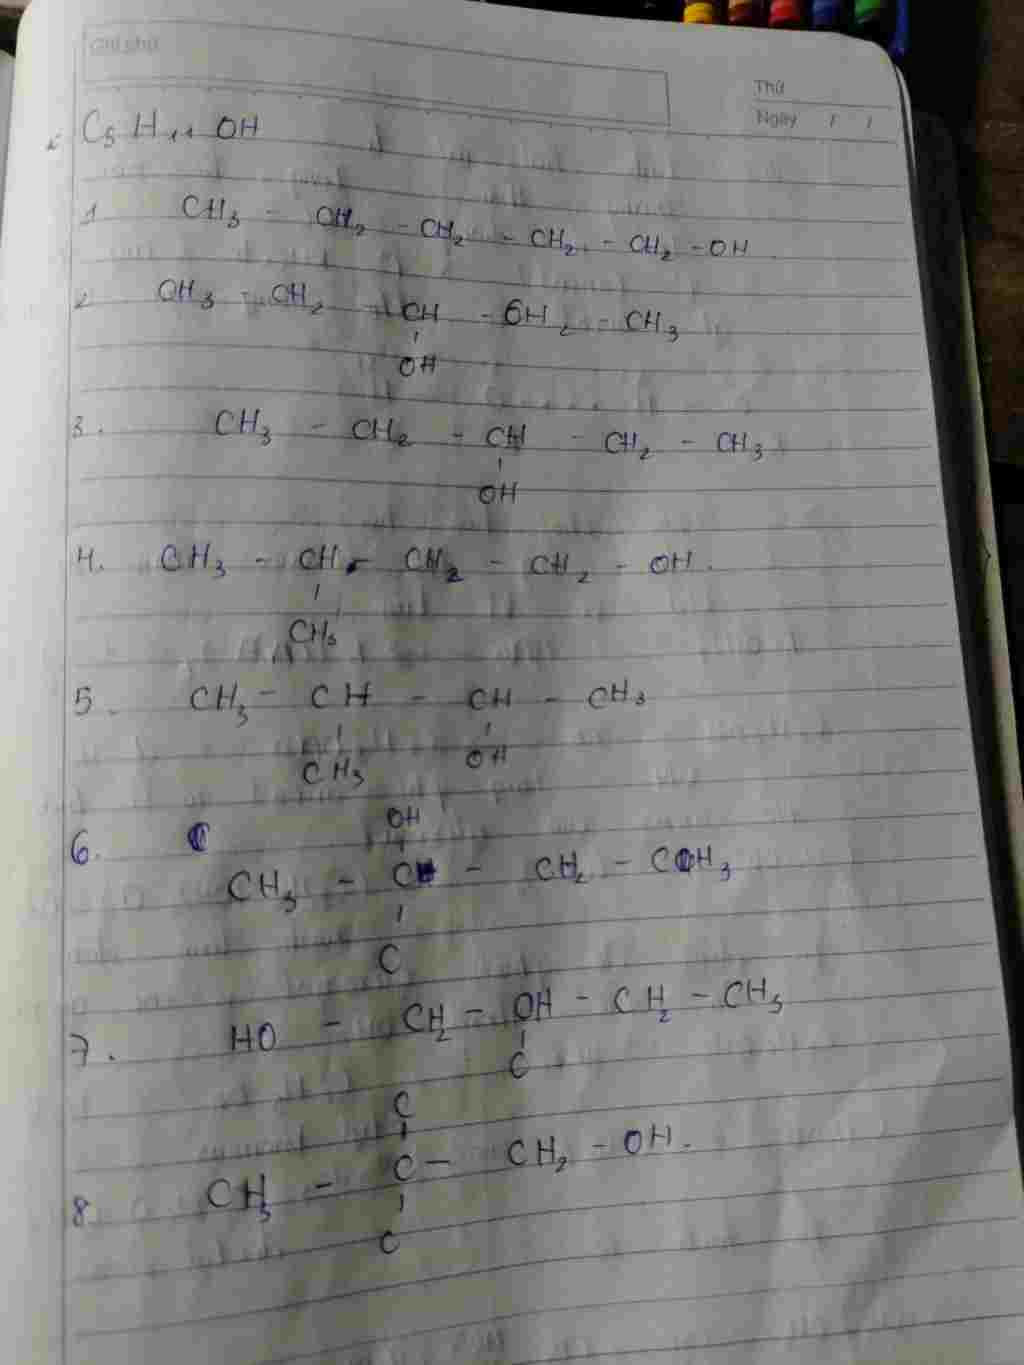 Ghi chú
Thứ
Ngày / /
C5H11OH
1 CH3 - CH2 - CH2 - CH2 - CH2 - OH
2 CH3 - CH2 - CH - CH2 - CH3
OH
3. CH3 - CH2 - CH - CH2 - CH3
OH
4. CH3 - CH - CH2 - CH2 - OH.
CH3
5. CH3 - CH - CH - CH3
CH3 OH
OH
6. CH3 - C - CH2 - CH3
C
7. HO - CH2 - CH - CH2 - CH3
C
C
8. CH3 - C - CH2 - OH.
C